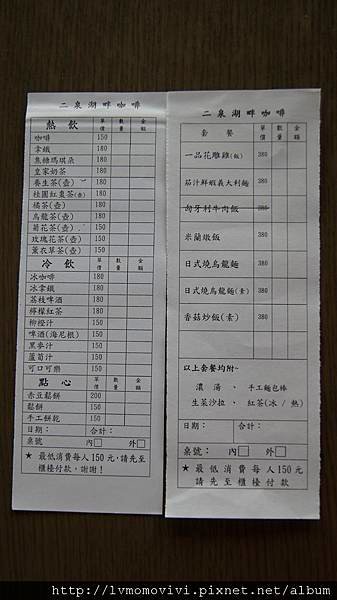 二泉湖畔咖啡
熱飲 單價 數量 金額
咖啡 150
拿鐵 180
焦糖瑪琪朵 180
皇家奶茶 180
養生茶(壺) 180
桂圓紅棗茶(壺) 180
橘茶(壺) 180
烏龍茶(壺) 180
菊花茶(壺) 150
玫瑰花茶(壺) 150
薰衣草茶(壺) 150
冷飲 單價 數量 金額
冰咖啡 180
冰拿鐵 180
荔枝啤酒 180
檸檬紅茶 180
柳橙汁 150
啤酒(海尼根) 150
黑麥汁 150
蘆筍汁 150
可口可樂 150
點心 單價 數量 金額
赤豆鬆餅 200
鬆餅 150
手工餅乾 150
日期： 合計：
桌號 內□ 外□
★ 最低消費每人150元，請先至
櫃檯付款，謝謝！
二泉湖畔咖啡
套餐 單價 數量 金額
一品花雕雞(飯) 380
茄汁鮮蝦義大利麵 380
匈牙利牛肉飯 380
米蘭燉飯 380
日式燒烏龍麵 380
日式燒烏龍麵(素) 380
香菇炒飯(素) 380
以上套餐均附~
濃湯、手工麵包棒
生菜沙拉、紅茶(冰/熱)
日期： 合計：
桌號： 內□ 外□
★ 最低消費每人150元
請先至櫃檯付款
http://lvmomovivi.pixnet.net/album